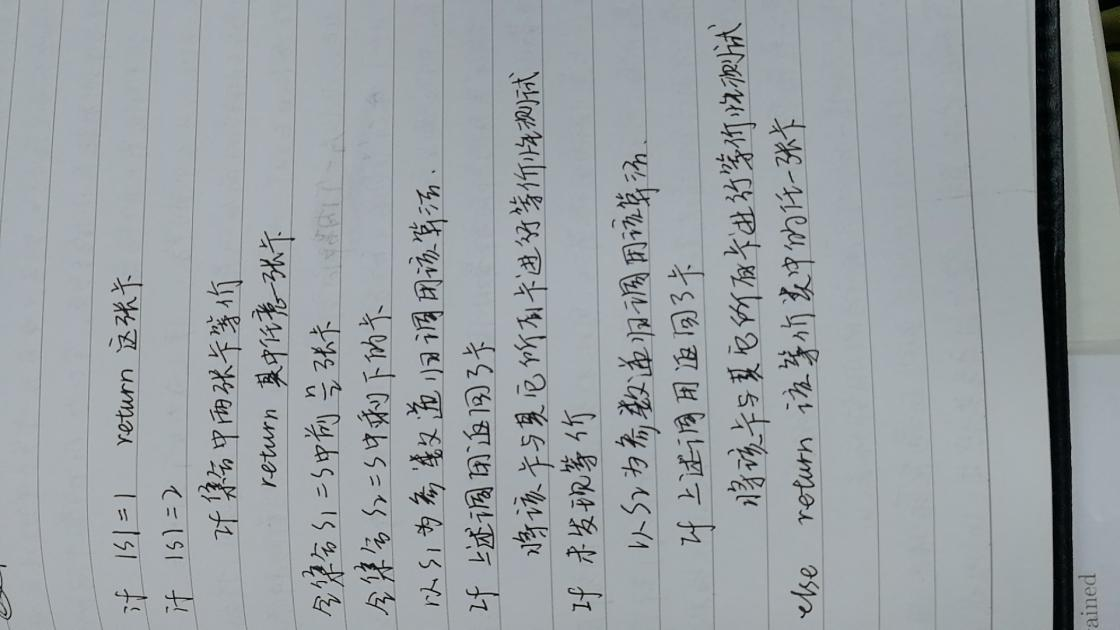 if |S|=1 return 这张卡
if |S|=2
if 集合中两张卡等价
return 其中任意一张卡
令集合S1=S中前n/2张卡
令集合S2=S中剩下的卡
以S1为参数递归调用该算法.
If 上述调用返回了卡
将该卡与其它所有卡进行等价性测试
If 未发现等价
以S2为参数递归调用该算法.
If 上述调用返回了卡
将该卡与其它所有卡进行等价性测试
else return 该等价类中的任一张卡
ained